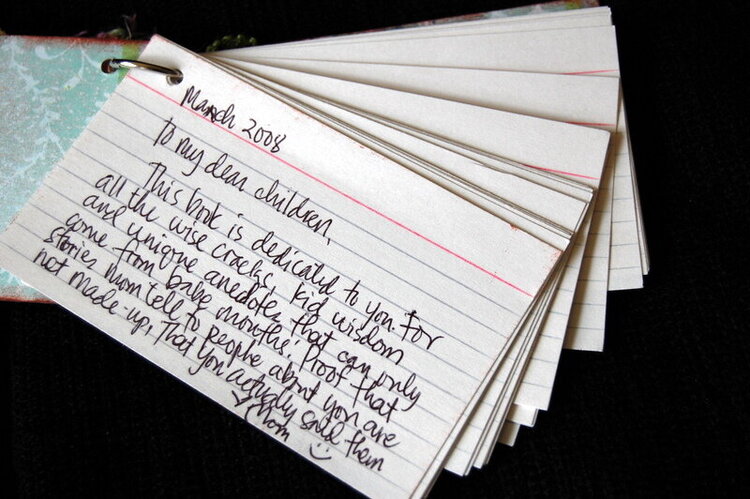 March 2008
To my dear children,
This book is dedicated to you. For
all the wise cracks, kid wisdom
and unique anedotes that can only
come from babe mouths! Proof that
stories mom tell to people about you are
not made-up. That you actually said them
♥ Mom